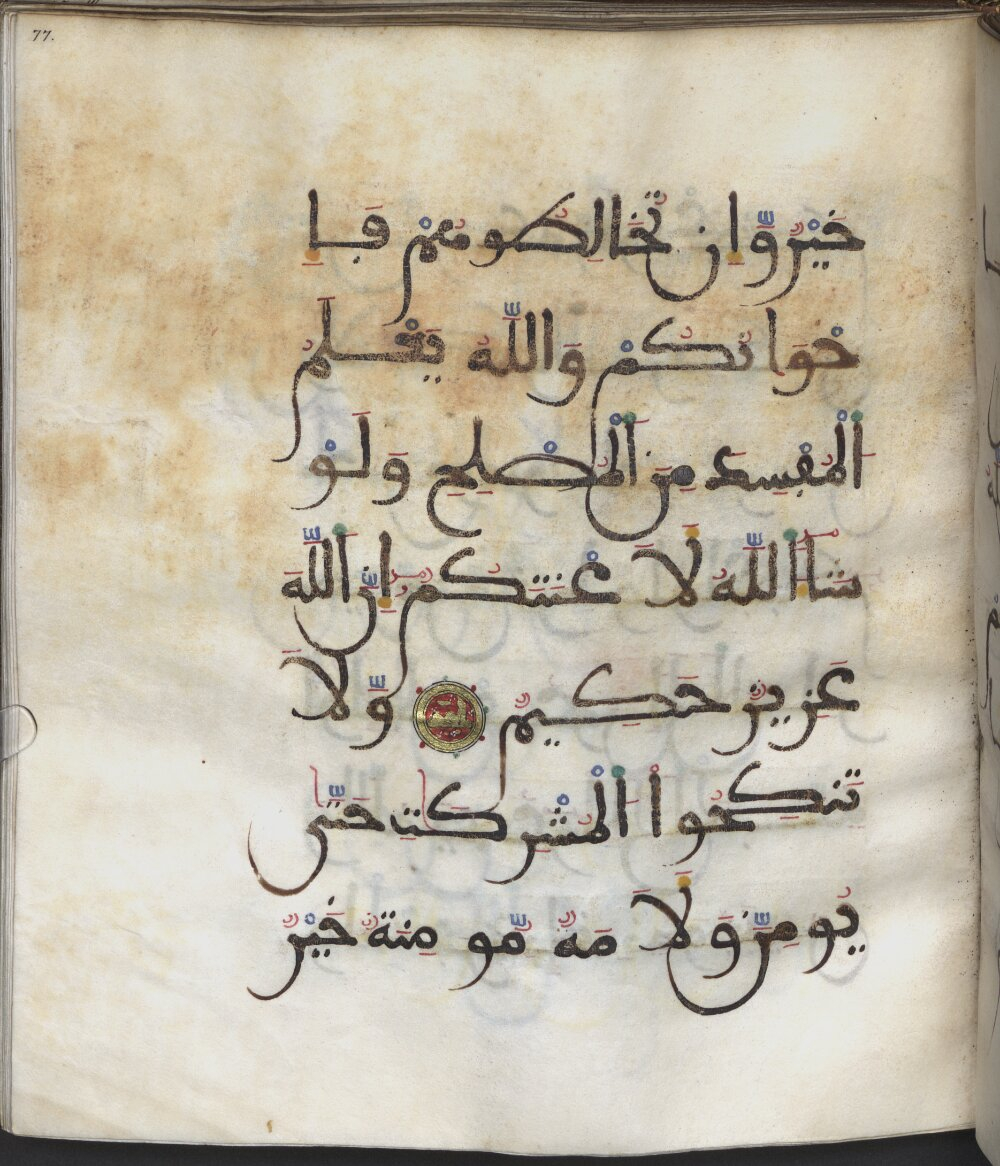 77.
خَيْرٌ وَّإِن تُخَالِطُوهُمْ فَإِ
خْوَانُكُمْ وَاللَّهُ يَعْلَمُ
الْمُفْسِدَ مِنَ الْمُصْلِحِ وَلَوْ
شَا اللَّهُ لَأَعْنَتَكُمْ إِنَّ اللَّهَ
عَزِيزٌ حَكِيمٌ وَّلَا
تَنكِحُوا الْمُشْرِكَٰتِ حَتَّىٰ
يُومِنَّ وَلَأَمَةٌ مُّومِنَةٌ خَيْرٌ